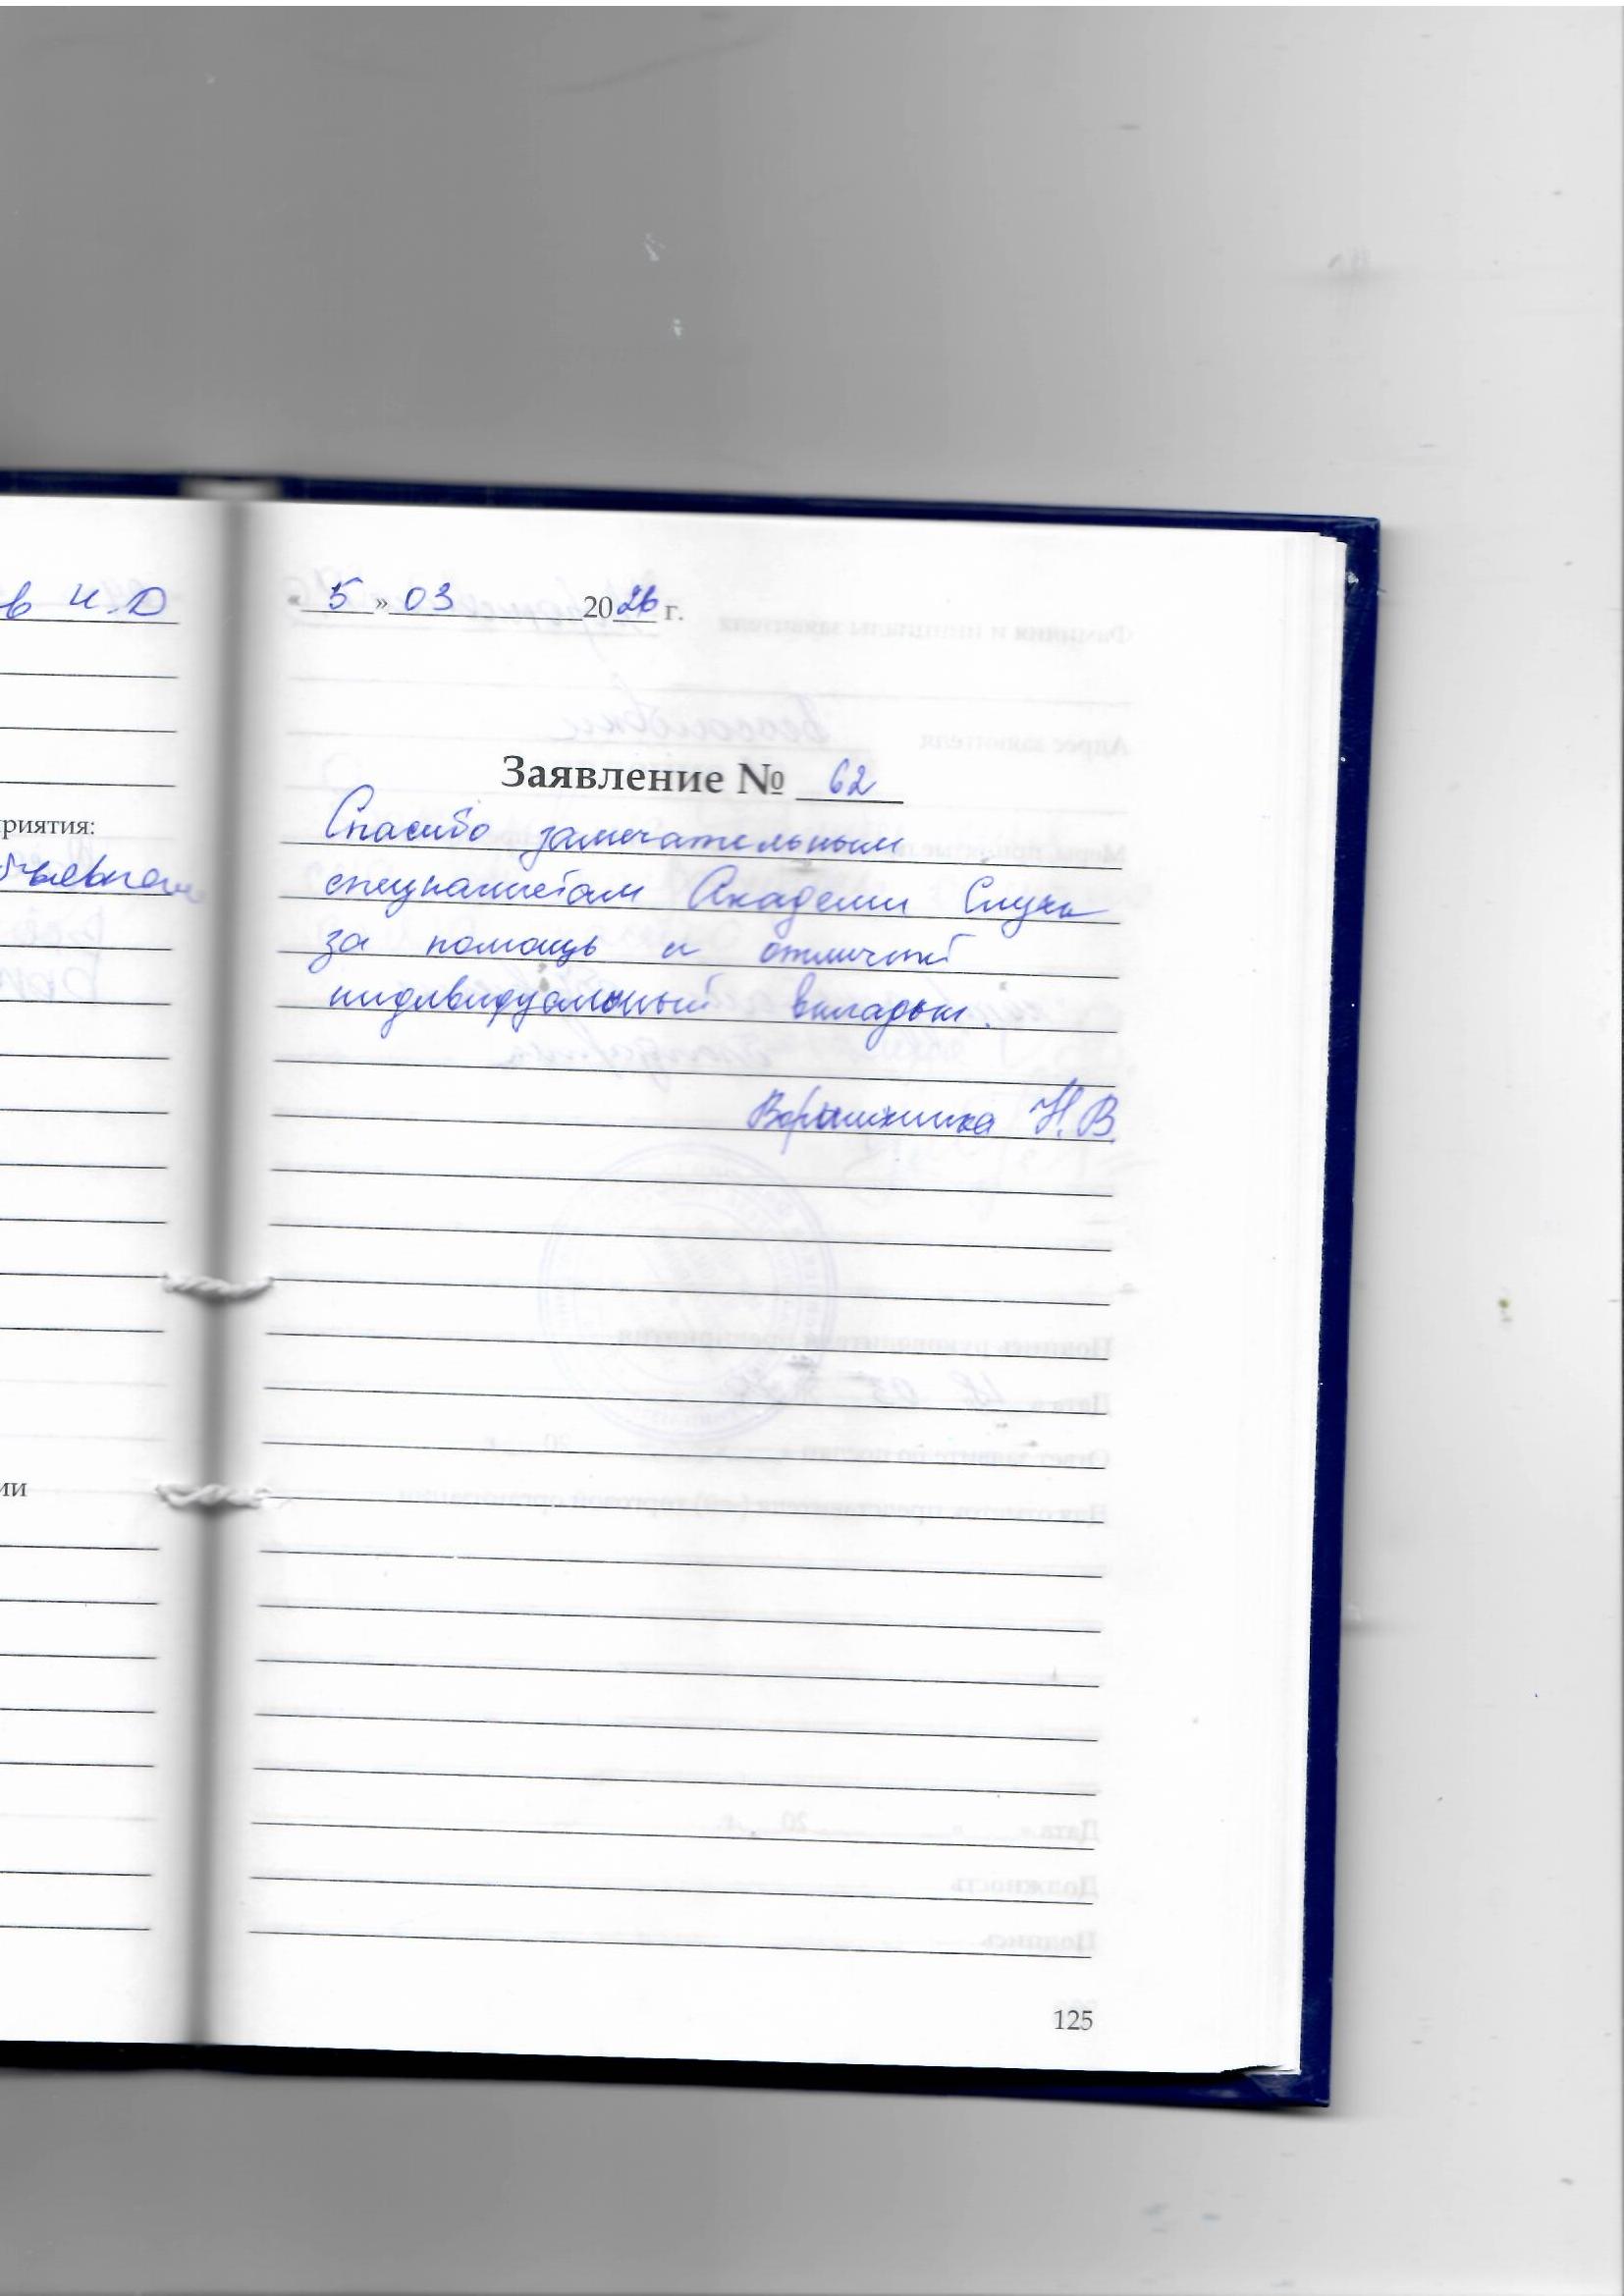 в И.О
«5» 03 2026 г.
Заявление № 62
приятия:
Спасибо замечательным
специалистам Академии Слуха
за помощь и отличный
индивидуальный вкладыш.
Н.В.
ии
125